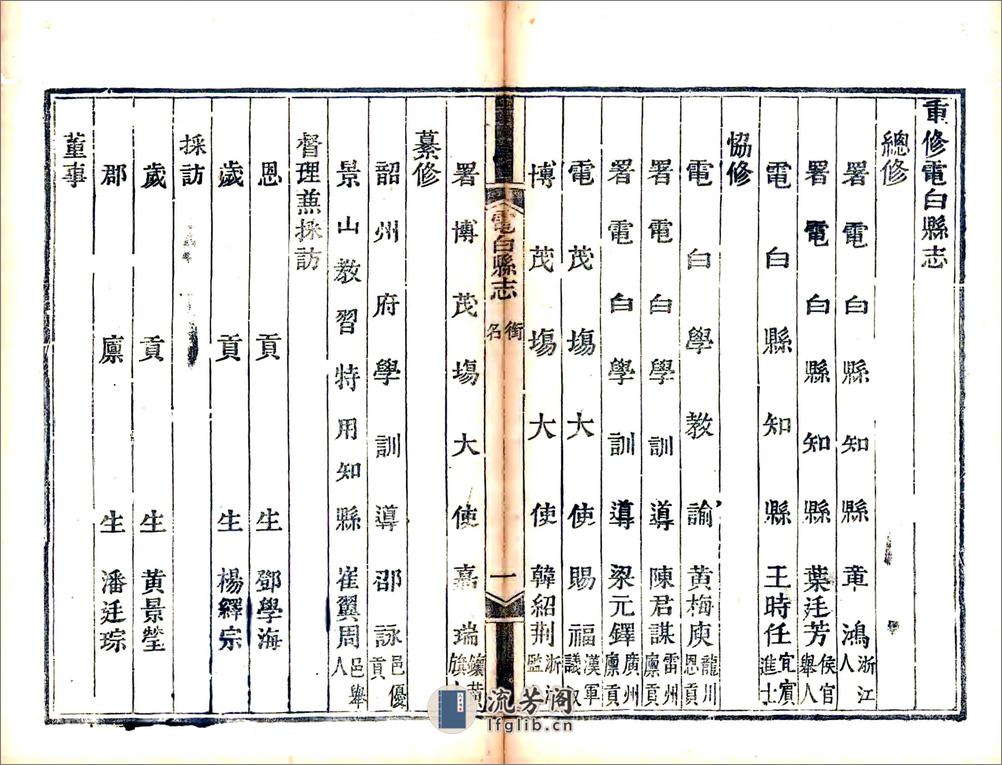 重修電白縣志
總修
署電白縣知縣章鴻 浙江人
署電白縣知縣葉廷芳 侯官舉人
電白縣知縣王時任 宜賓進士
協修
電白學教諭黃梅庾 龍川恩貢
署電白學訓導陳君謀 雷州廪貢
署電白學訓導梁元鐸 廣州廪貢
電茂場大使賜福 漢軍議叙
博茂場大使韓紹荆 浙江監
電白縣志
銜名
一
署博茂場大使嘉瑞 鑲黃旗
纂修
韶州府學訓導邵詠 邑優貢
景山教習特用知縣崔翼周 邑舉人
督理兼採訪
恩貢生鄧學海
歲貢生楊繹宗
採訪
歲貢生黃景瑩
郡廪生潘廷琮
董事
流芳阁
lfglib.cn